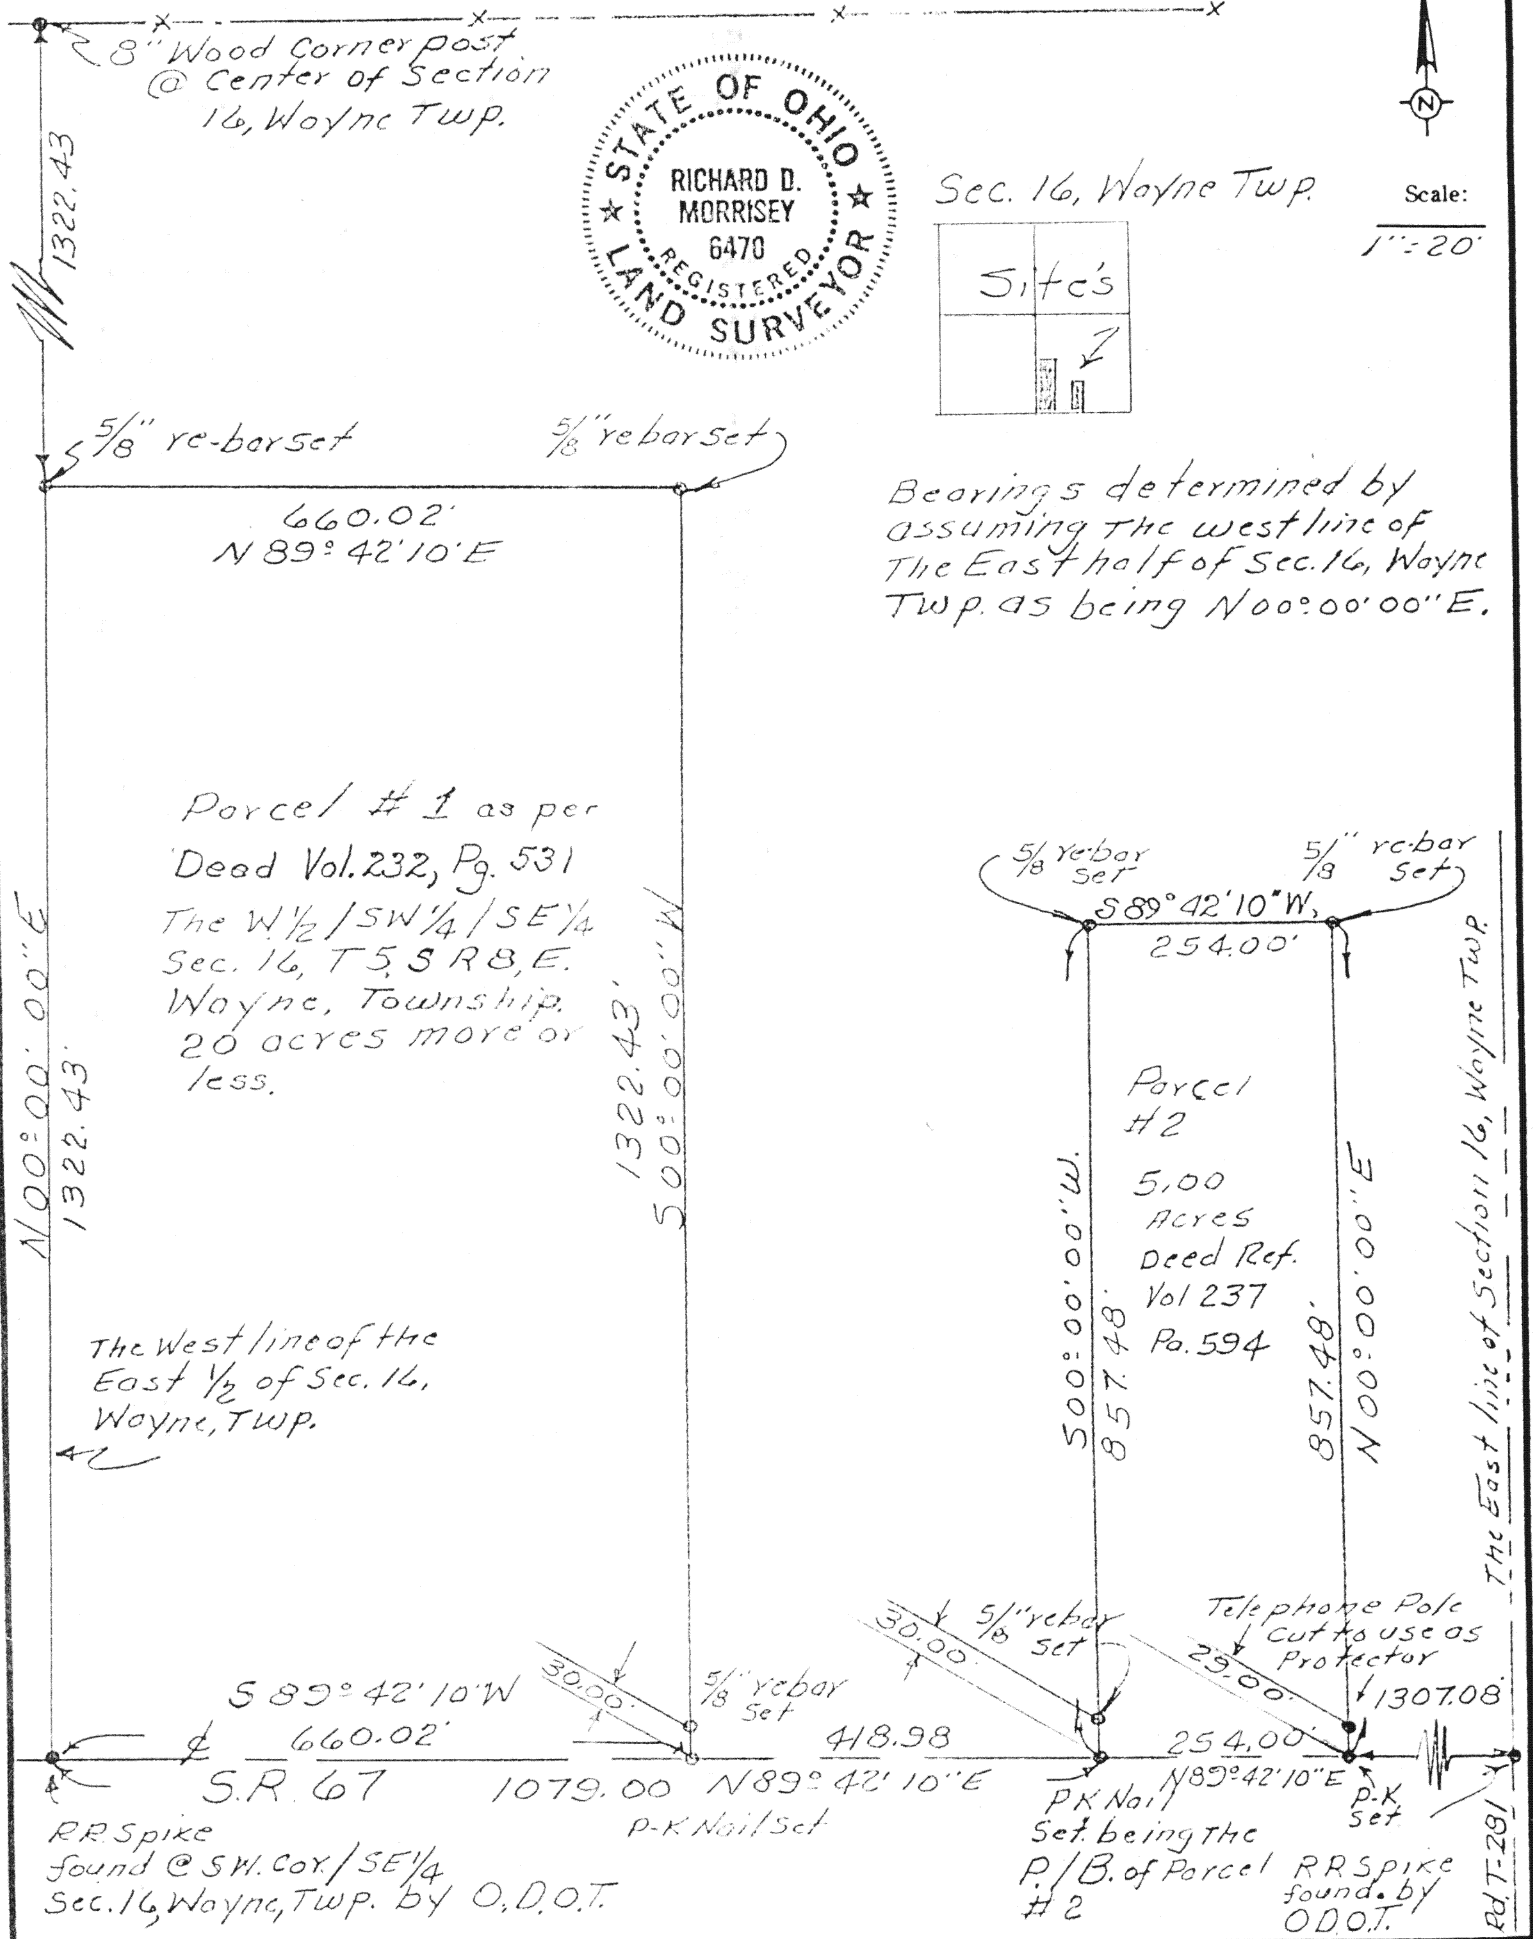 8" Wood Corner post
@ Center of Section
16, Wayne Twp.
1322.43
STATE OF OHIO
RICHARD D.
MORRISEY
6470
REGISTERED
LAND SURVEYOR
N
Sec. 16, Wayne Twp.
Scale:
1"=20'
Site's
5/8" re-bar set
5/8" rebar set
660.02'
N 89° 42' 10' E
Bearings determined by
assuming The west line of
The East half of Sec. 16, Wayne
Twp. as being N 00° 00' 00" E.
Parcel # 1 as per
Dead Vol. 232, Pg. 531
The W 1/2 / SW 1/4 / SE 1/4
Sec. 16, T 5, S R 8, E.
Wayne, Township.
20 acres more or
less.
N 00° 00' 00" E
1322.43'
1322.43'
S 00° 00' 00" W
The West line of the
East 1/2 of Sec. 16,
Wayne, Twp.
5/8 re-bar
set
5/8" re-bar
set
S 89° 42' 10" W,
254.00'
Parcel
# 2
5.00
Acres
Deed Ref.
Vol 237
Pa. 594
S 00° 00' 00" W.
857.48'
857.48'
N 00° 00' 00" E
The East line of Section 16, Wayne Twp.
30.00'
5/8" rebar
set
30.00'
5/8" rebar
set
Telephone Pole
Cut to use as
Protector
29.00'
1307.08'
S 89° 42' 10' W
660.02'
℄
S.R. 67
1079.00
418.98
N 89° 42' 10" E
254.00'
N 89° 42' 10" E
P-K Nail Set
P-K
Set
PK Nail
Set being The
P./B. of Parcel
# 2
RR Spike
found @ SW. Cor. / SE 1/4
Sec. 16, Wayne, Twp. by O.D.O.T.
RR Spike
found. by
O.D.O.T.
Rd. T-281